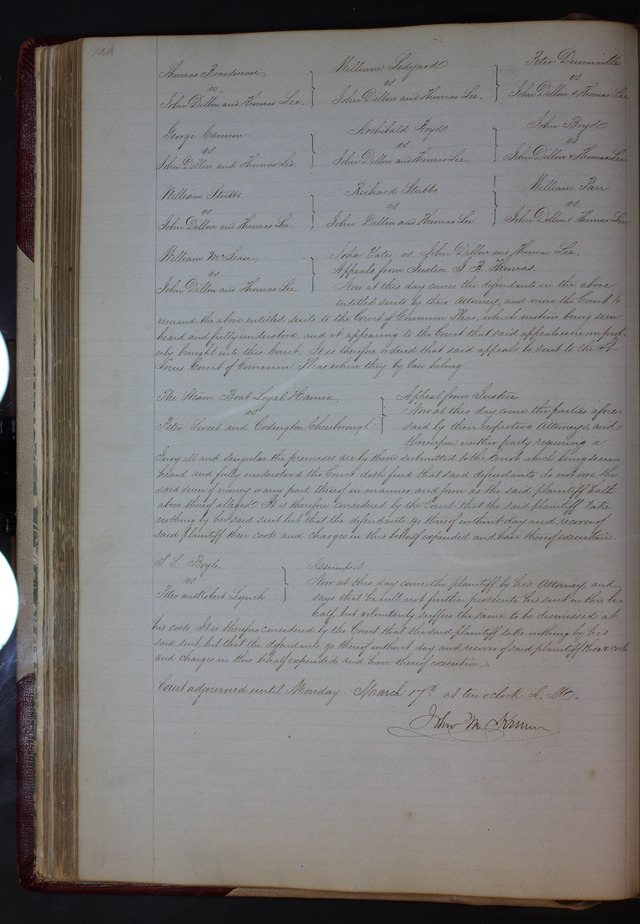 124.
Thomas Boardman vs John Dillon and Thomas Lee } William Ledyard vs John Dillon and Thomas Lee. } Peter Dunnville vs John Dillon & Thomas Lee
George Cannon vs John Dillon and Thomas Lee } Archibald Boyd vs John Dillon and Thomas Lee. } John Boyd vs John Dillon & Thomas Lee
William Stubbs vs John Dillon and Thomas Lee } Richard Stubbs vs John Dillon and Thomas Lee } William Parr vs John Dillon & Thomas Lee
William McLean vs John Dillon and Thomas Lee } John Yates vs John Dillon and Thomas Lee.
Appeals from Justice J. B. Thomas.
Now at this day comes the defendants in the above
entitled suits by their Attorney, and move the Court to
remand the above entitled suits to the Court of Common Pleas, which motion being seen
heard and fully understood, and it appearing to the Court that said appeals were improp-
erly brought into this Court. It is therefore ordered that said appeals be sent to the St
Louis Court of Common Pleas where they by law belong
The Steam Boat Loyal Hanna vs Peter Sweet and Codington Cheesborough } Appeal from Justice
Now at this day come the parties afore-
said by their respective Attorneys, and
thereupon neither party requiring a
Jury all and singular the premises are by them submitted to the Court, which being seen
heard and fully understood the Court doth find that said defendants do not owe the
said sum of money or any part thereof in manner and form as the said plaintiff hath
above thereof alleged. It is therefore considered by the Court that the said plaintiff take
nothing by his said suit but that the defendants go thereof without day and recover of
said plaintiff their costs and charges in this behalf expended and have thereof execution.
Boyle vs Peter and Robert Lynch } Assumpsit
Now at this day comes the plaintiff by his Attorney and
says that he will not further prosecute his suit in this be-
half, but voluntarily suffers the same to be dismissed at
his costs. It is therefore considered by the Court that the said plaintiff take nothing by his
said suit, but that the defendants go thereof without day and recover of said plaintiff their costs
and charges in this behalf expended and have thereof execution.
Court adjourned until Monday March 17th at ten o'clock A. M.
John M. Krum